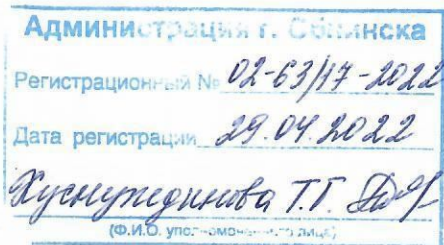 Администрация г. Обнинска
Регистрационный № 02-63/17-2022
Дата регистрации 29.04.2022
Хуснутдинова Т.Г.
(Ф.И.О. уполномоченного лица)